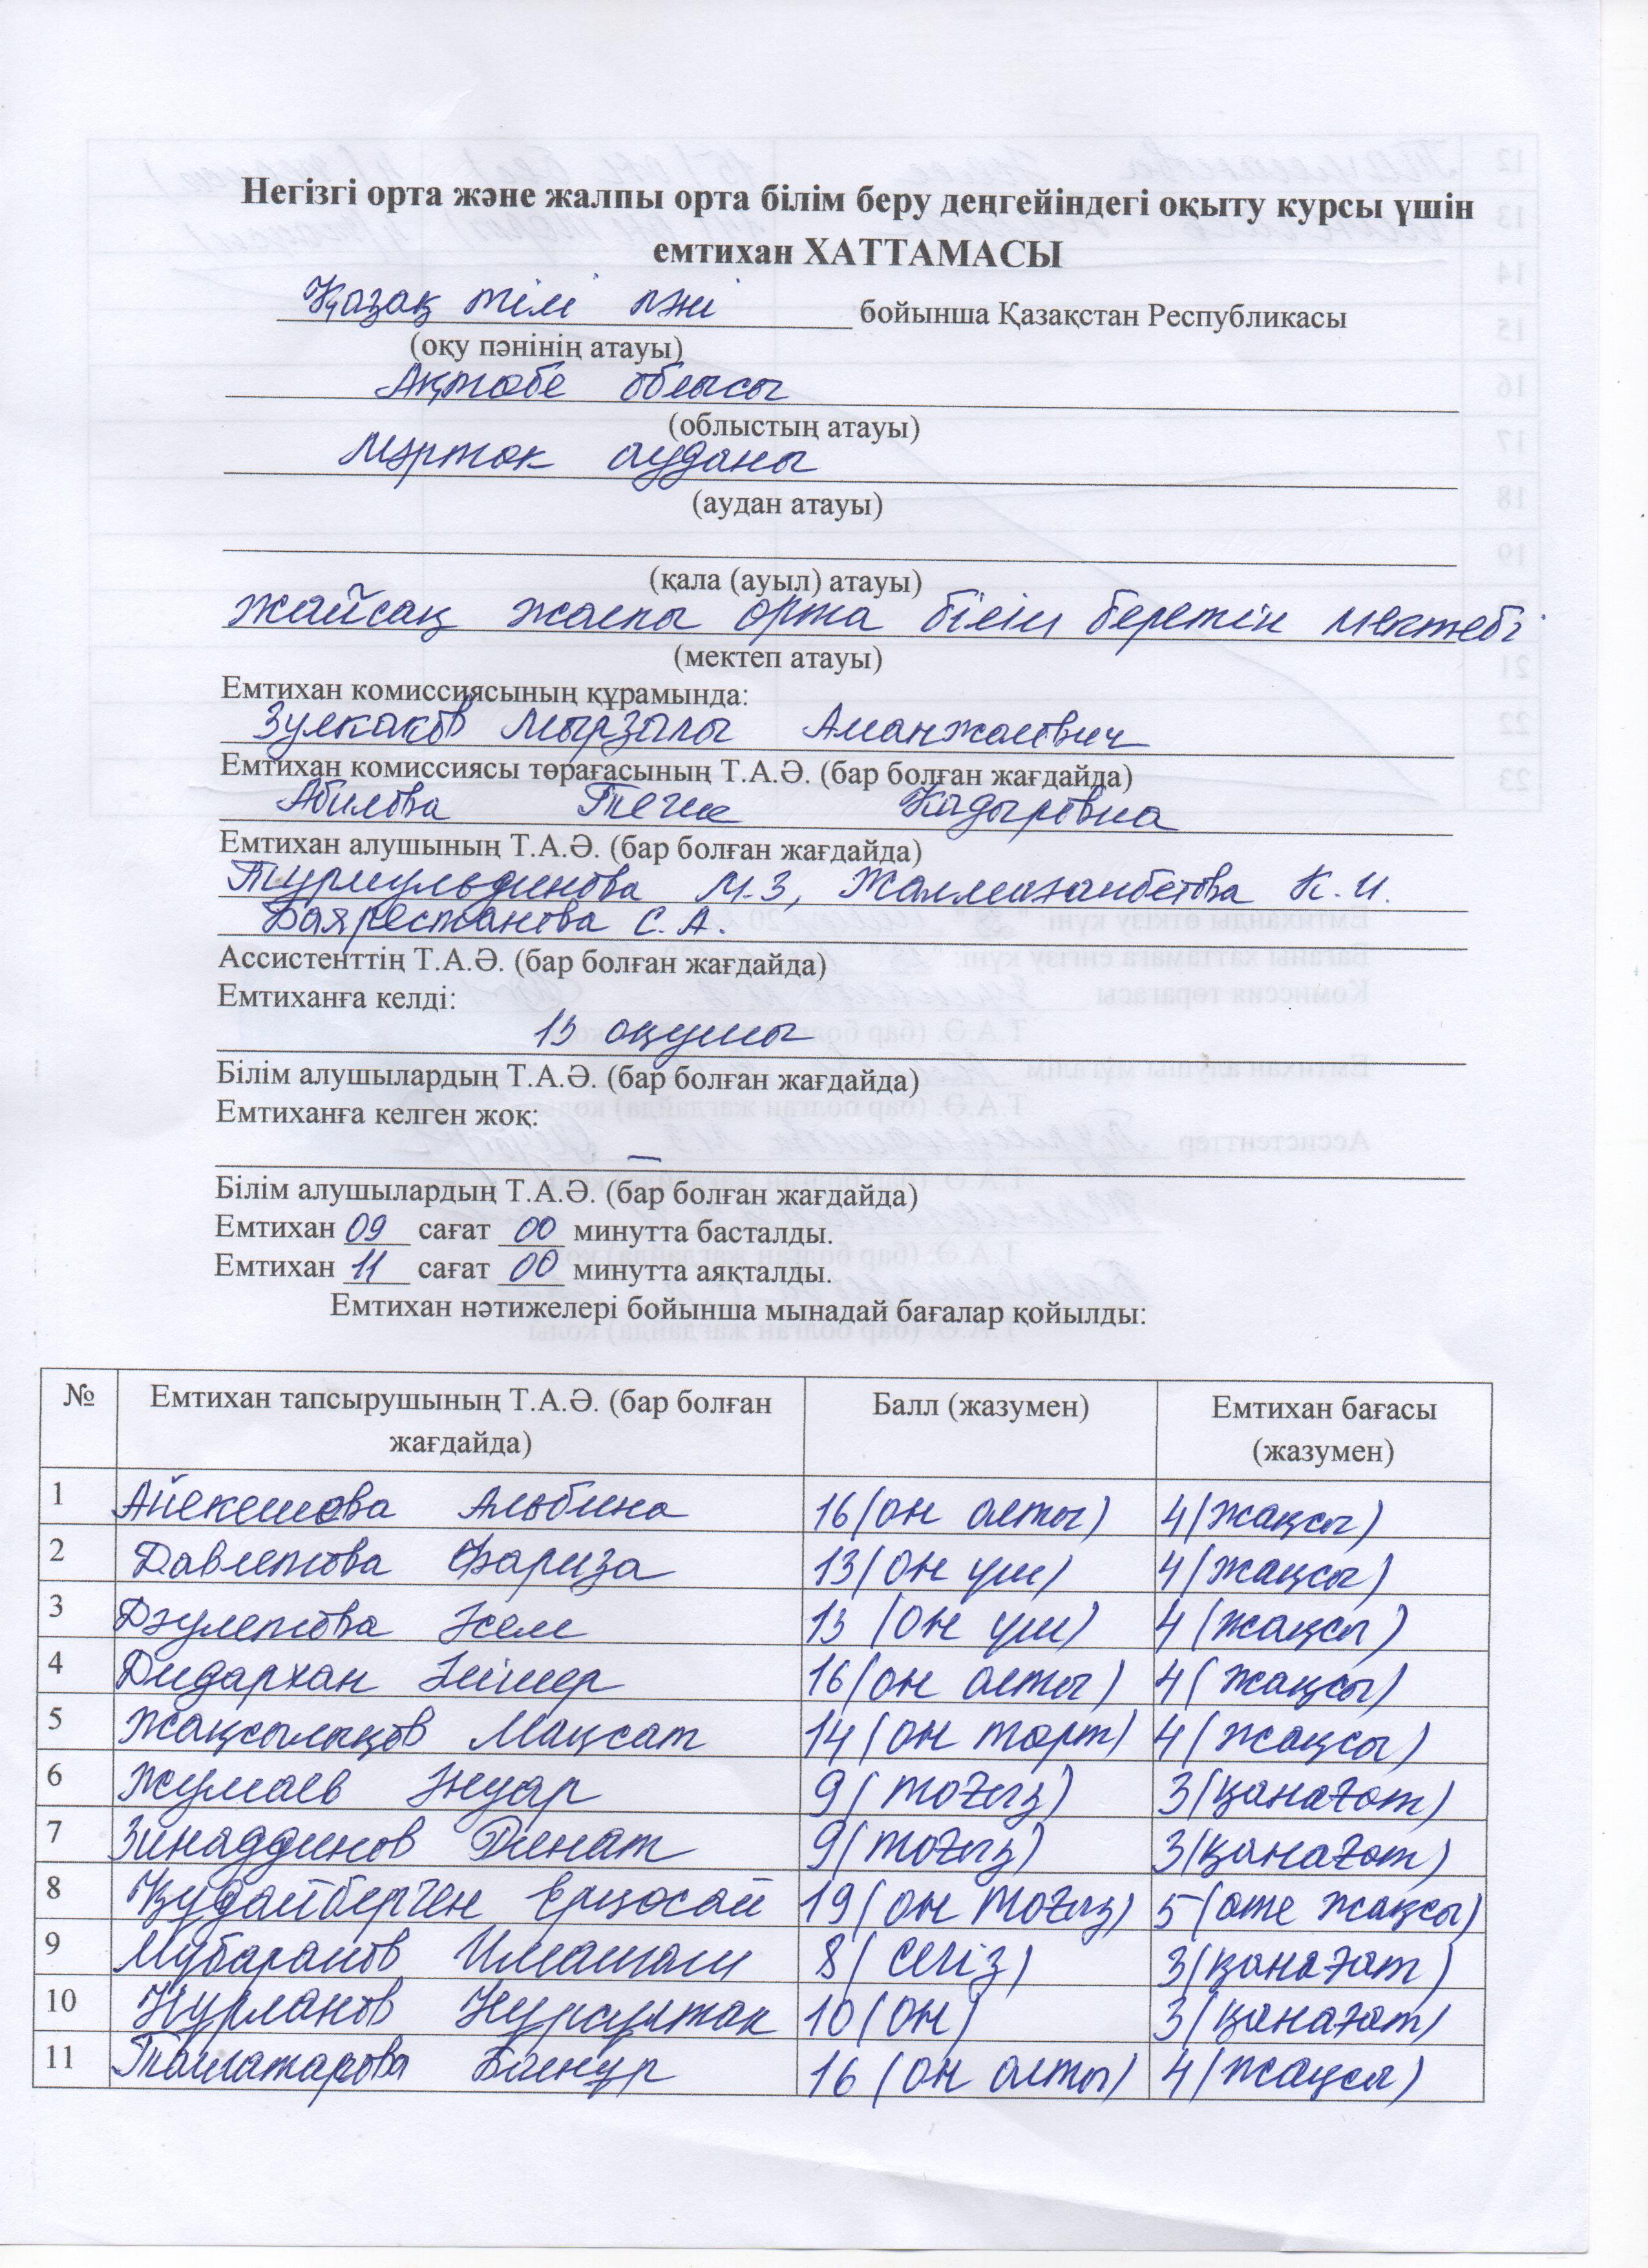 Негізгі орта және жалпы орта білім беру деңгейіндегі оқыту курсы үшін
емтихан ХАТТАМАСЫ
Қазақ тілі пәні бойынша Қазақстан Республикасы
(оқу пәнінің атауы)
Ақтөбе облысы
(облыстың атауы)
Мәртөк ауданы
(аудан атауы)
(қала (ауыл) атауы)
Жайсаң жалпы орта білім беретін мектебі
(мектеп атауы)
Емтихан комиссиясының құрамында:
Мырзалы Аманжолович
Емтихан комиссиясы төрағасының Т.А.Ә. (бар болған жағдайда)
Абилова Кадыровна
Емтихан алушының Т.А.Ә. (бар болған жағдайда)
М.З, К.И.
С.А.
Ассистенттің Т.А.Ә. (бар болған жағдайда)
Емтиханға келді:
13 оқушы
Білім алушылардың Т.А.Ә. (бар болған жағдайда)
Емтиханға келген жоқ:
–
Білім алушылардың Т.А.Ә. (бар болған жағдайда)
Емтихан 09 сағат 00 минутта басталды.
Емтихан 11 сағат 00 минутта аяқталды.
Емтихан нәтижелері бойынша мынадай бағалар қойылды:
№ Емтихан тапсырушының Т.А.Ә. (бар болған жағдайда) Балл (жазумен) Емтихан бағасы (жазумен)
1 Айекешова Альбина 16 (он алты) 4 (жақсы)
2 Давлетова Фариза 13 (он үш) 4 (жақсы)
3 Дәулетова Әсел 13 (он үш) 4 (жақсы)
4 Дидархан 16 (он алты) 4 (жақсы)
5 Жақсылықов Мақсат 14 (он төрт) 4 (жақсы)
6 Жумаев Әнуар 9 (тоғыз) 3 (қанағат)
7 Зинаддинов Динат 9 (тоғыз) 3 (қанағат)
8 Құдайберген Ерқосай 19 (он тоғыз) 5 (өте жақсы)
9 8 (сегіз) 3 (қанағат)
10 Нурланов Нурсултан 10 (он) 3 (қанағат)
11 16 (он алты) 4 (жақсы)